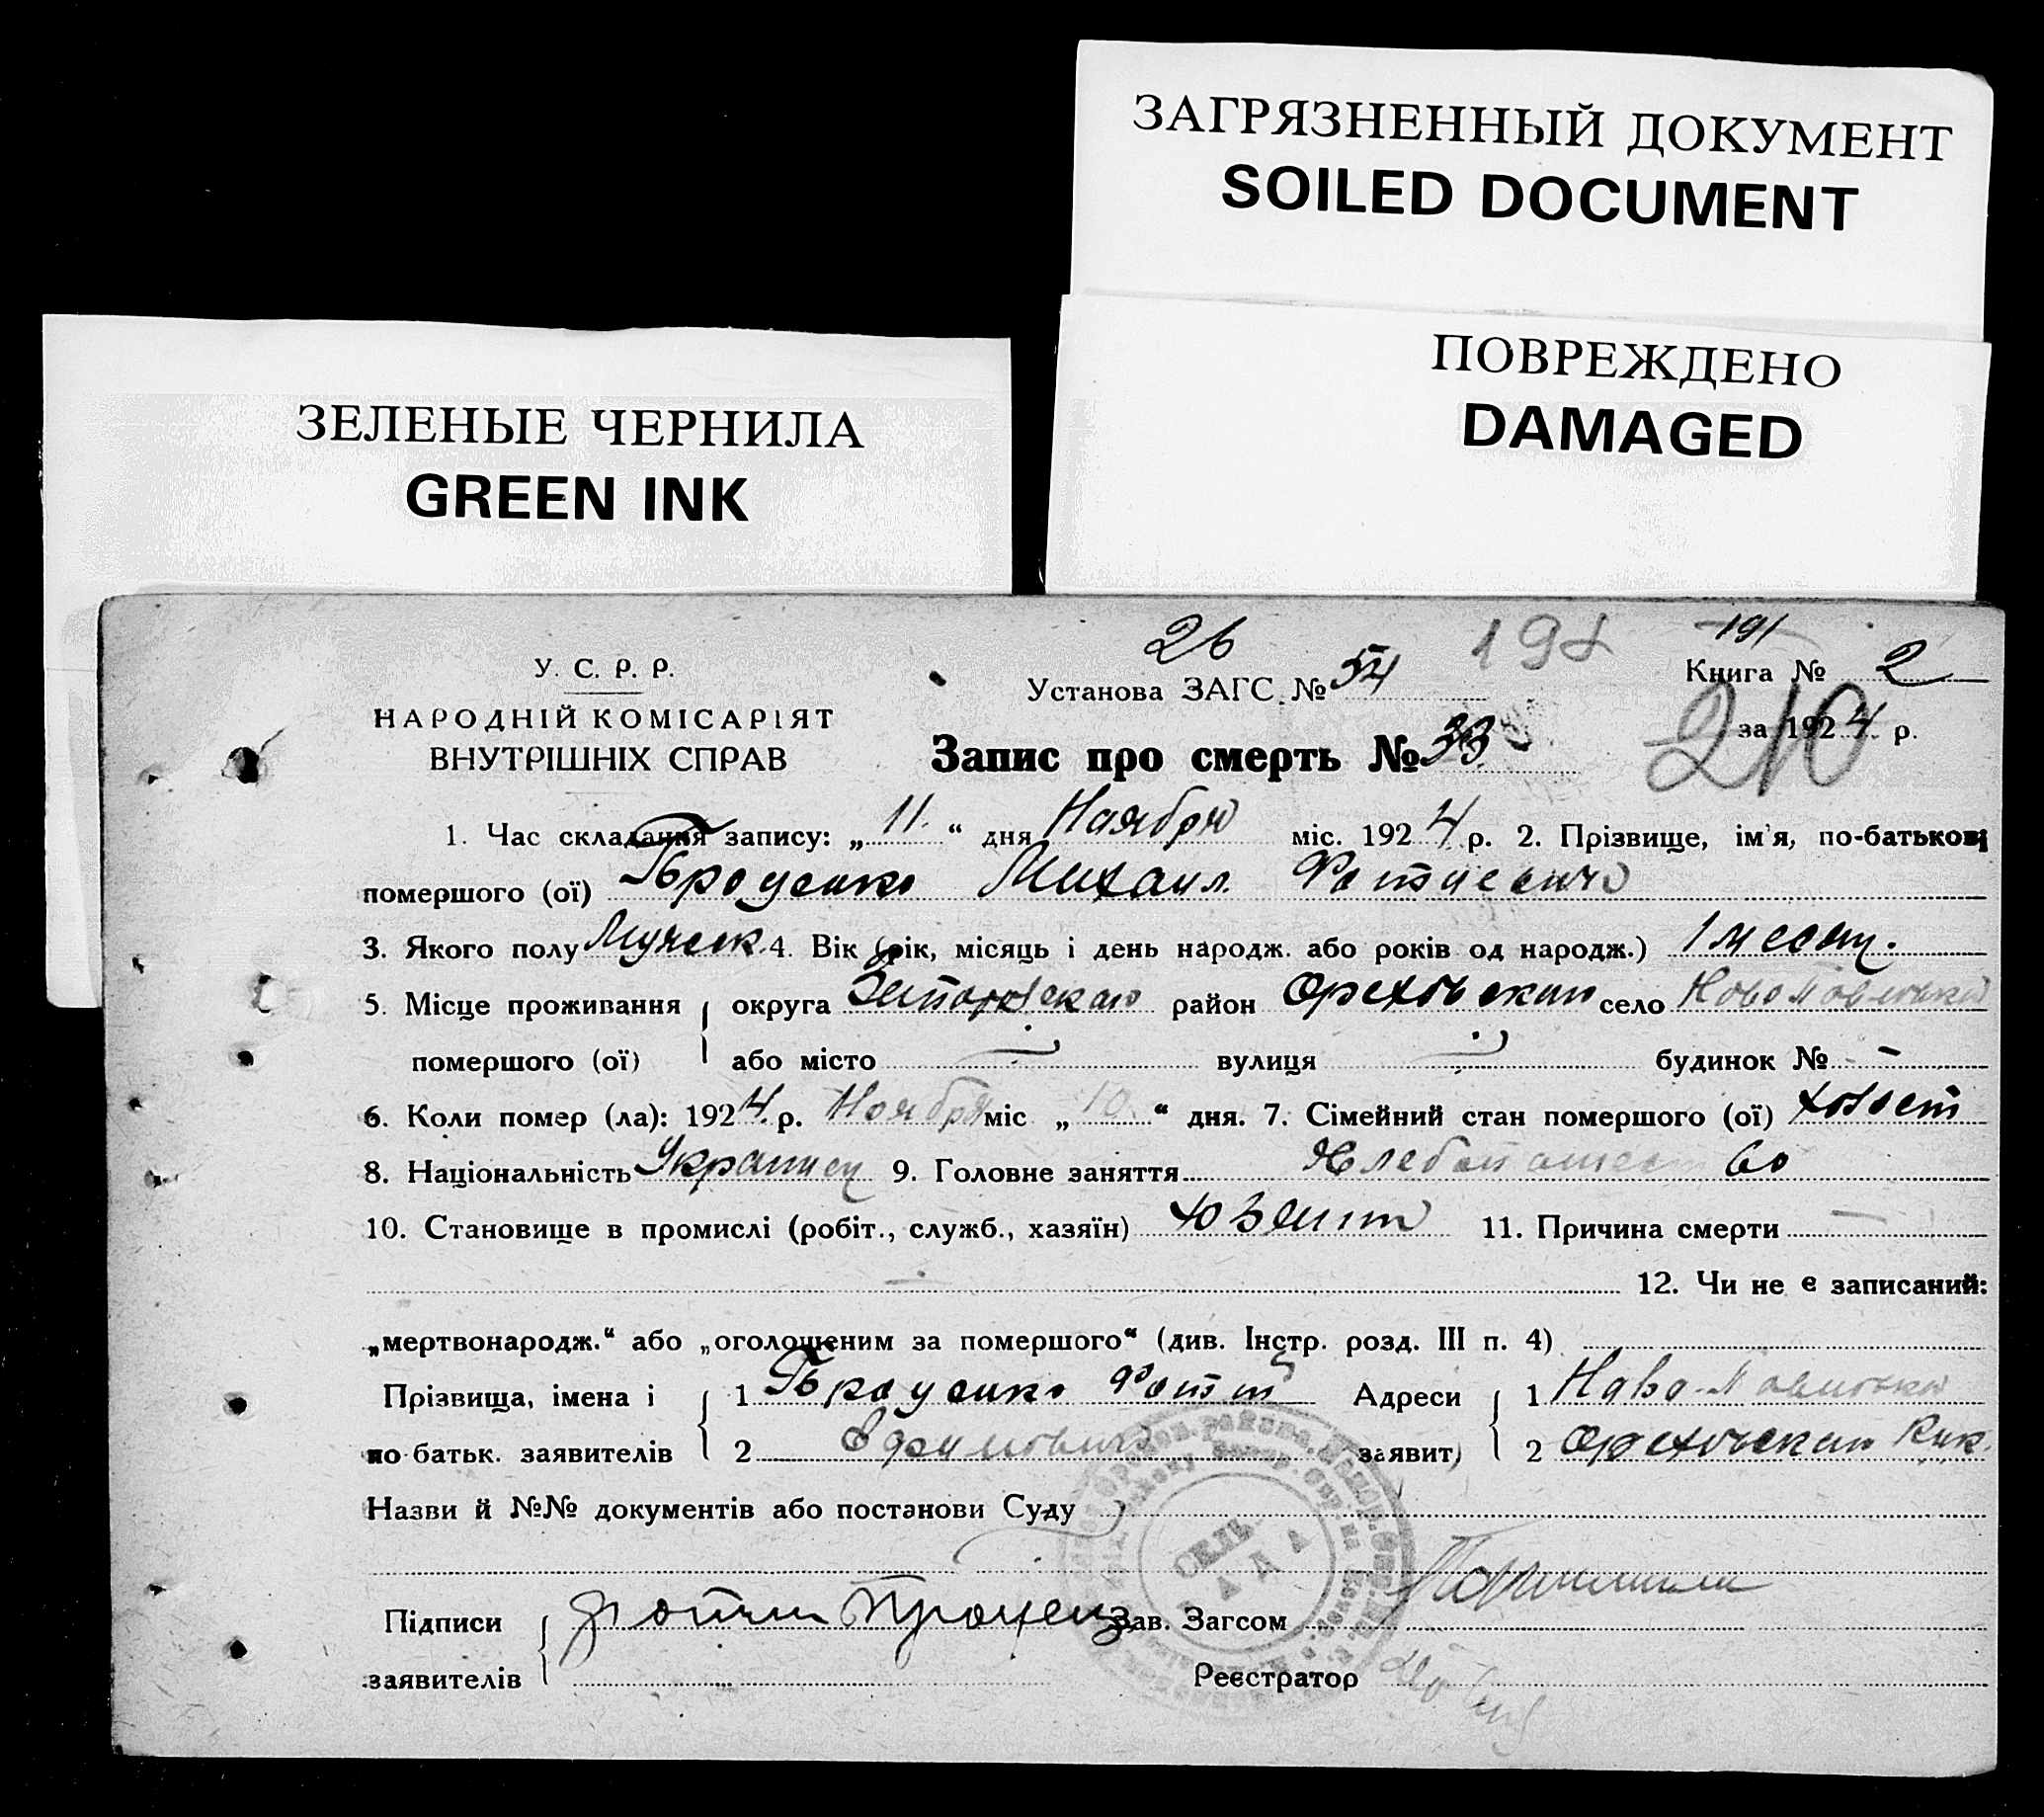 ЗАГРЯЗНЕННЫЙ ДОКУМЕНТ
SOILED DOCUMENT
ПОВРЕЖДЕНО
DAMAGED
ЗЕЛЕНЫЕ ЧЕРНИЛА
GREEN INK
26 191
У. С. Р. Р. Установа ЗАГС № 54 Книга № 2
НАРОДНІЙ КОМІСАРІЯТ
ВНУТРІШНІХ СПРАВ
210 за 1924 р.
Запис про смерть № 33
1. Час складання запису: „11“ дня Ноября міс. 1924 р. 2. Прізвище, ім'я, по-батькові
помершого (ої) Проценко Михаил Фотиевич
3. Якого полу Мужск. 4. Вік (рік, місяць і день народж. або років од народж.) 1 месяц.
5. Місце проживання округа район Ореховский село Ново Павловка
помершого (ої) або місто — вулиця — будинок № —
6. Коли помер (ла): 1924 р. Ноября міс „10“ дня. 7. Сімейний стан помершого (ої) холост
8. Національність Украинец 9. Головне заняття Хлебопашество
10. Становище в промислі (робіт., служб., хазяїн) хозяин 11. Причина смерти —
— 12. Чи не є записаний:
„мертвонародж.“ або „оголошеним за помершого“ (див. Інстр. розд. III п. 4)
Прізвища, імена і 1 Проценко Фотий Адреси 1 Ново-Павловка
по батьк. заявителів 2 Ефимович заявит. 2 Ореховский
Назви й №№ документів або постанови Суду
Підписи Фотий Проценко Зав. Загсом
заявителів Реєстратор
СІЛЬ
РАДА